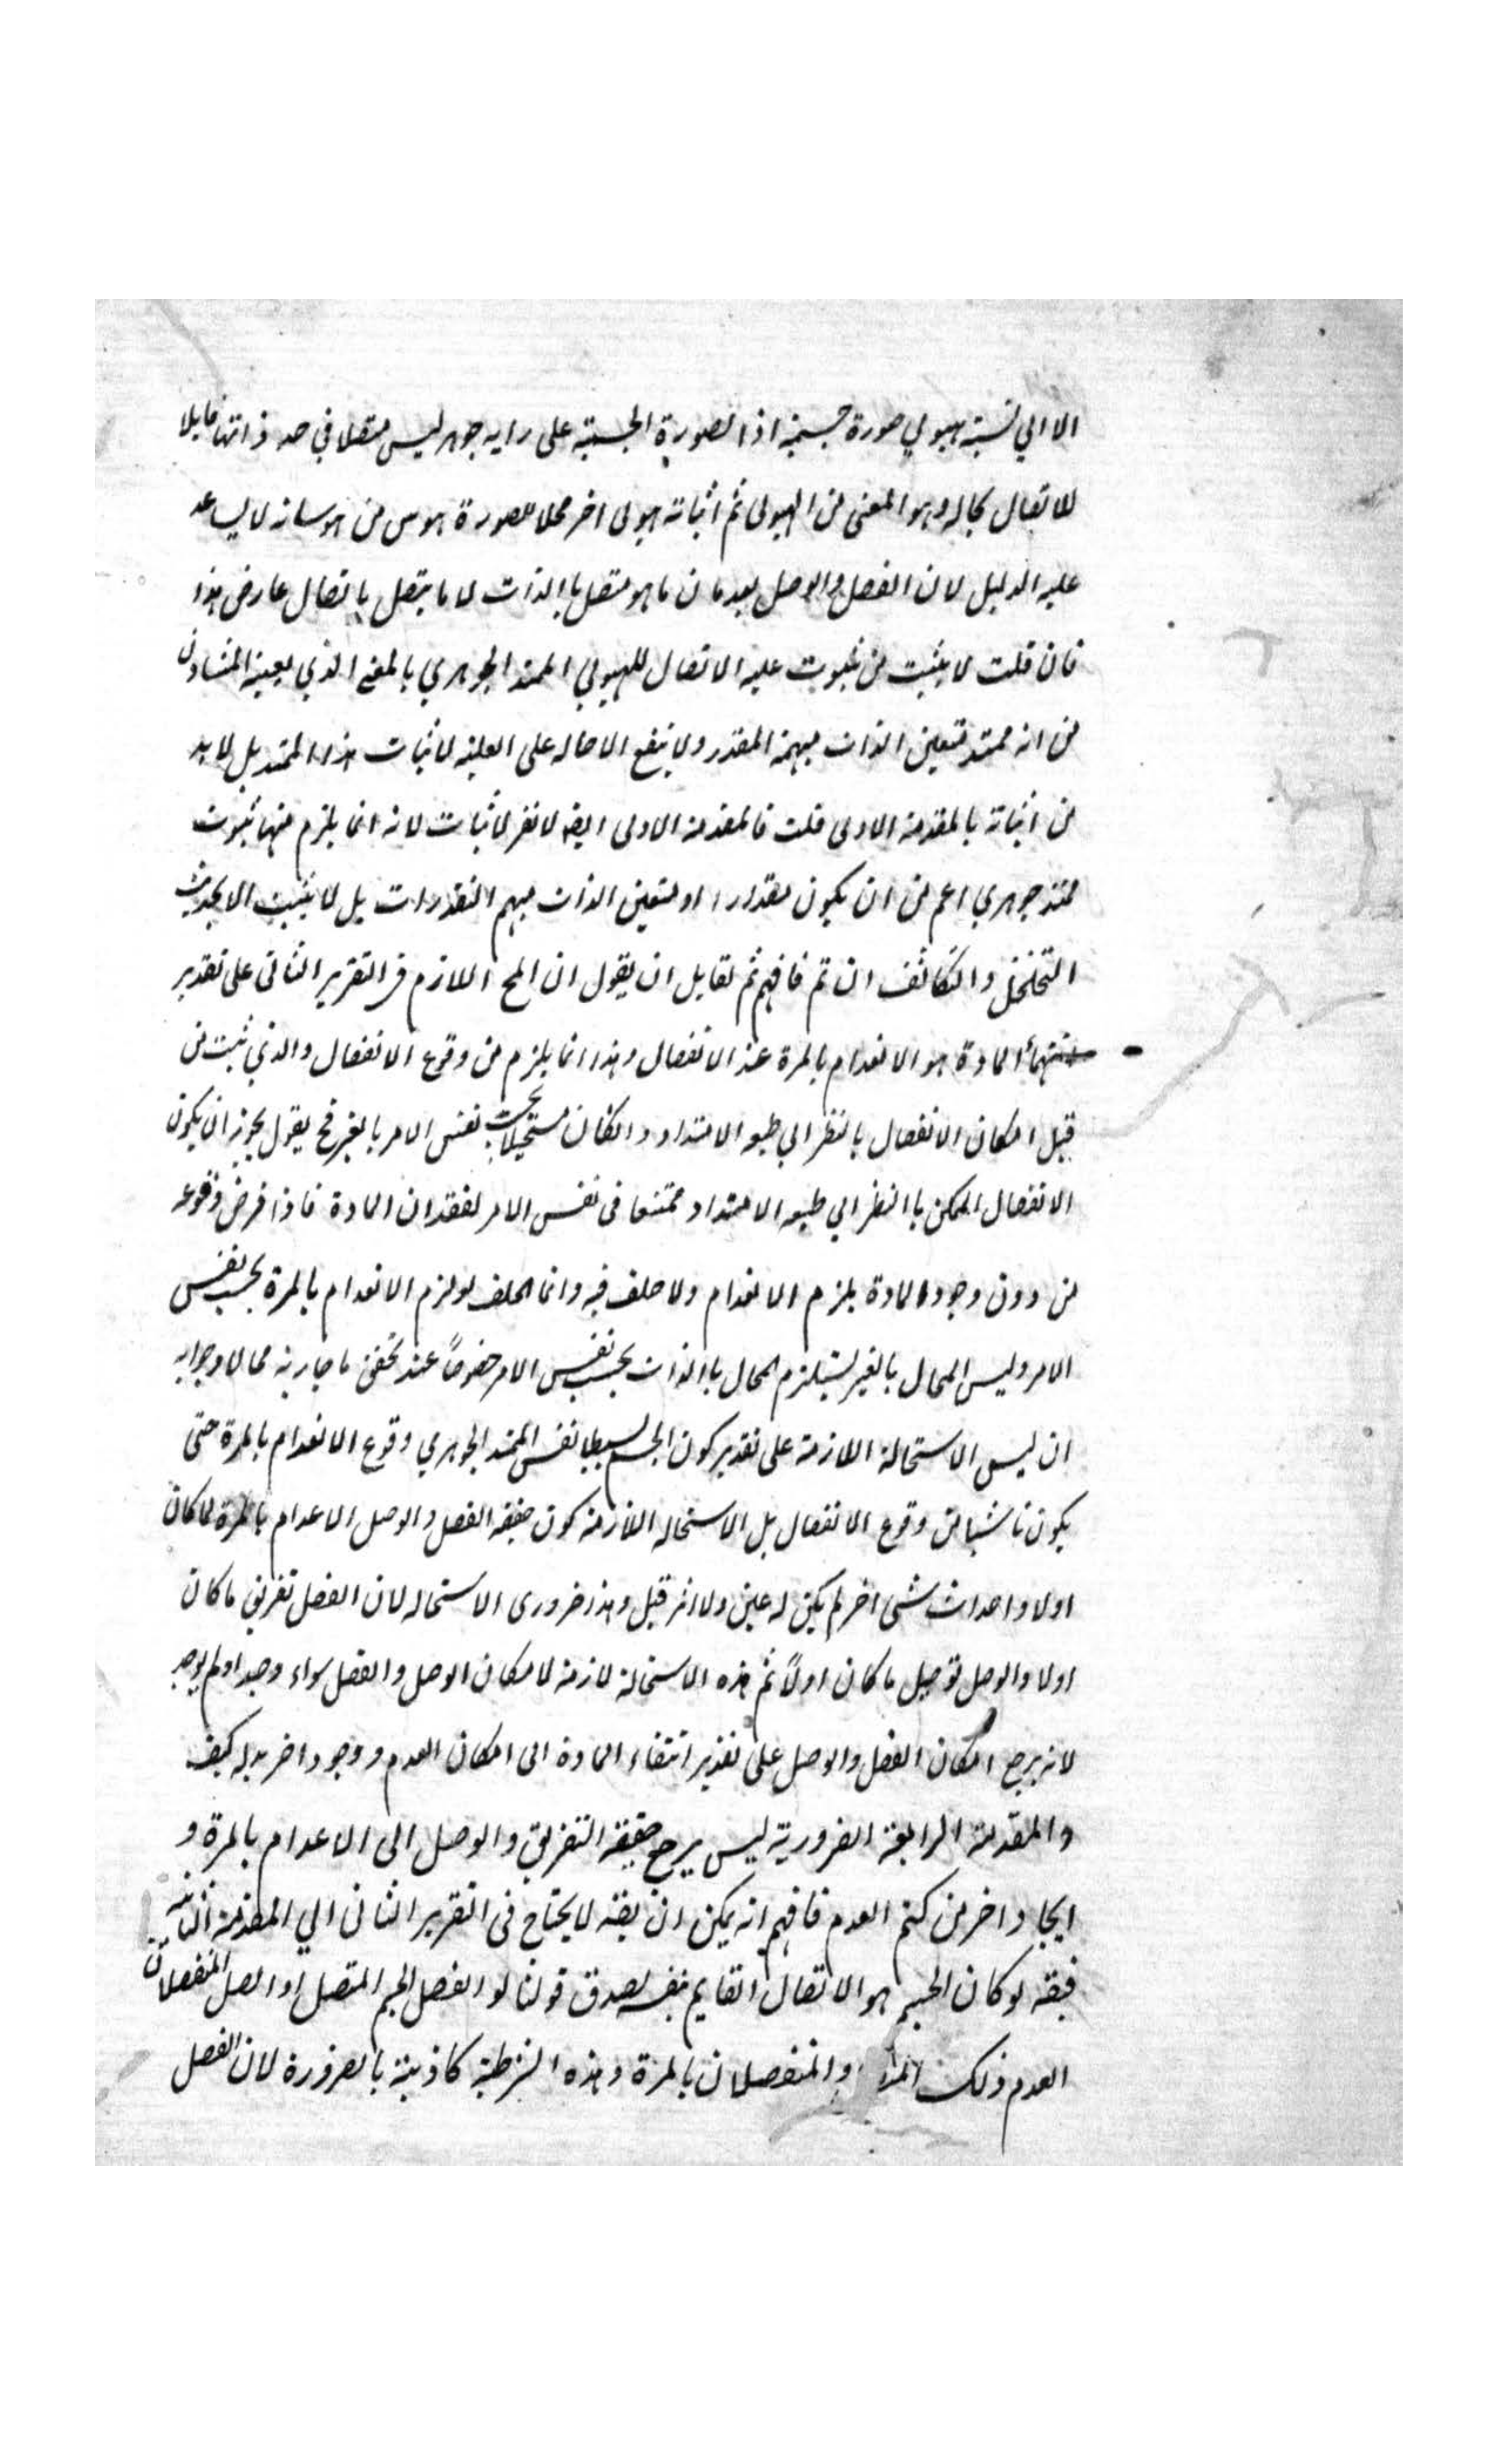 الا الي تسبة هيولي صورة جسمية اذ الصورة الجسمية على رايه جوهر ليس متصلا في حد ذاتها قابلا
للاتصال بحاله وهو المعنى من الهيولى ثم اثباته هيولى اخر محلا للصورة هوس من هوساته لا يساعد
عليه الدليل لان الفصل والوصل يعدمان ما هو متصل باالذات لا ما يتصل باتصال عارض هذا
فان قلت لا يثبت من ثبوت عليه الاتصال للهيولي الممتد الجوهري بالمعنى الذي يعينه المشاون
من انه ممتد متعين الذات مبهمة المقدر ولا ينفع الاحاله على العلية لاثبات هذا الممتد بل لا بد
من اثباته بالمقدمة الاولى قلت فالمقدمة الاولى ايضا لا تفي لاثبات لانه انما يلزم منها ثبوت
ممتد جوهري اعم من ان يكون مقدارا او متعين الذات مبهم التقدرات بل لا يثبت الا بحديث
التخلخل والتكاثف ان تم فافهم ثم لقايل ان يقول ان المح اللازم في التقرير الثاني على تقدير
المادة هو الانعدام بالمرة عند الانفصال وهذا انما يلزم من وقوع الانفصال والذي ثبت من
قبل امكان الانفصال بالنظر الي طبعه الامتداد وانكان مستحيلا بحسب نفس الامر بالغير فح يقول يجوز ان يكون
الانفصال الممكن باالنظر الي طبعه الامتداد ممتنعا في نفس الامر لفقدان المادة فاذا فرض وقوعه
من دون وجود المادة يلزم الانعدام ولا خلف فيه وانما الخلف لو لزم الانعدام بالمرة بحسب نفس
الامر وليس المحال بالغير يستلزم المحال باالذات بحسب نفس الامر خصوصاً عند تحقق ما جاز به محالا وجوابه
ان ليس الاستحالة اللازمة على تقدير كون الجسم بسيطا نفس الممتد الجوهري وقوع الانعدام بالمرة حتى
يكون ناشيا من وقوع الانفصال بل الاستحاله اللازمة كون حقيقه الفصل والوصل الاعدام بالمرة لما كان
اولا واحداث شئ اخر لم يكن له عين ولا اثر قبل وهذا ضرورى الاستحاله لان الفصل تفريق ما كان
اولا والوصل توصيل ما كان اولاً ثم هذه الاستحالة لازمة لامكان الوصل والفصل سواء وجد او لم يوجد
لانه يرجع امكان الفصل والوصل على تقدير انتفاء المادة الى امكان العدم ووجود اخر بدله كيف
والمقدمة الرابعة الضرورية ليس يرجع حقيقه التفريق والوصل الى الاعدام بالمرة و
ايجاد اخر من كتم العدم فافهم انه يمكن ان يقه لا يحتاج في التقرير الثاني الي المقدمة الثانية
فيقه لو كان الجسم هو الاتصال القايم بنفسه لصدق قولنا لو انفصل الجسم المتصل او اتصل المنفصلان
العدم ذلك والمنفصلان بالمرة وهذه الشرطية كاذبة بالضرورة لان الفصل